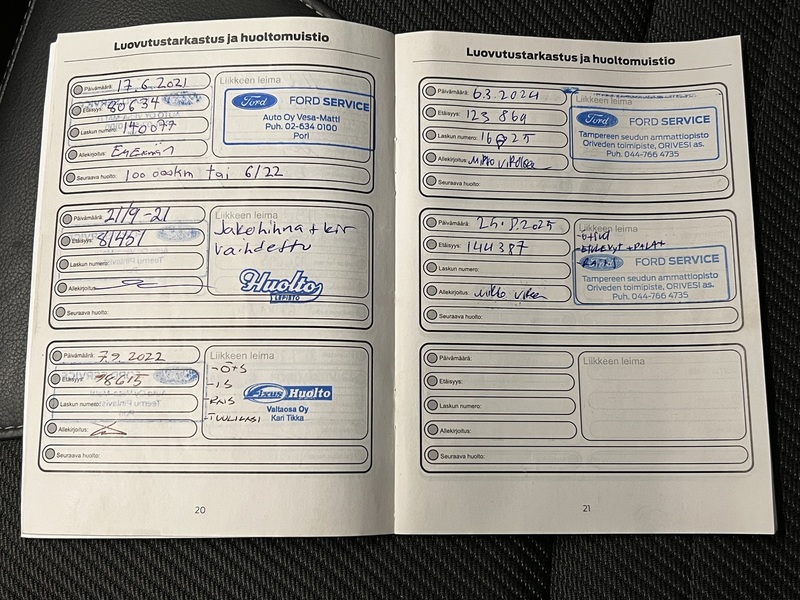 Luovutustarkastus ja huoltomuistio
Päivämäärä: 17.6.2021
Etäisyys: 80634
Laskun numero: 140077
Allekirjoitus:
Seuraava huolto: 100 000km tai 6/22
Liikkeen leima
Ford FORD SERVICE
Auto Oy Vesa-Matti
Puh. 02-634 0100
Pori
Päivämäärä: 21/9-21
Etäisyys: 81451
Laskun numero:
Allekirjoitus:
Seuraava huolto:
Liikkeen leima
Jakohihna + kir
vaihdettu
Huolto
LEPISTÖ
Päivämäärä: 7.9.2022
Etäisyys: 98615
Laskun numero:
Allekirjoitus:
Seuraava huolto:
Liikkeen leima
-Ö+S
-IS
-RAIS
-TUULILASI
Fixus Huolto
Valtaosa Oy
Kari Tikka
20
Luovutustarkastus ja huoltomuistio
Päivämäärä: 6.3.2024
Etäisyys: 123 869
Laskun numero:
Allekirjoitus: Mikko
Seuraava huolto:
Ford FORD SERVICE
Tampereen seudun ammattiopisto
Oriveden toimipiste, ORIVESI as.
Puh. 044-766 4735
Päivämäärä: 25.8.2025
Etäisyys: 144387
Laskun numero:
Allekirjoitus: Mikko
Seuraava huolto:
Liikkeen leima
FORD SERVICE
Tampereen seudun ammattiopisto
Oriveden toimipiste, ORIVESI as.
Puh. 044-766 4735
Päivämäärä:
Etäisyys:
Laskun numero:
Allekirjoitus:
Seuraava huolto:
Liikkeen leima
21